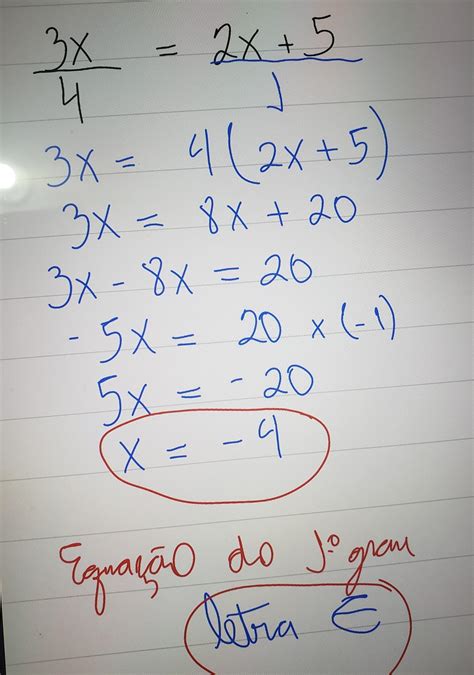 3x/4 = 2x + 5/1
3x = 4(2x + 5)
3x = 8x + 20
3x - 8x = 20
- 5x = 20 x (-1)
5x = - 20
x = - 4
Equação do 1º grau
letra E